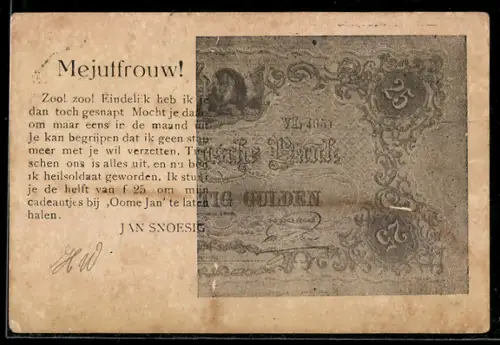 Mejuffrouw!
Zoo! zoo! Eindelijk heb ik je
dan toch gesnapt Mocht je dan
om maar eens in de maand uit
Je kan begrijpen dat ik geen stap
meer met je wil verzetten. Tus
schen ons is alles uit, en nu ben
ik heilsoldaat geworden. Ik stuur
je de helft van f 25 om mijn
cadeautjes bij 'Oome Jan' te laten
halen.
JAN SNOESIG
HW
25
sche Bank
TIG GULDEN
25